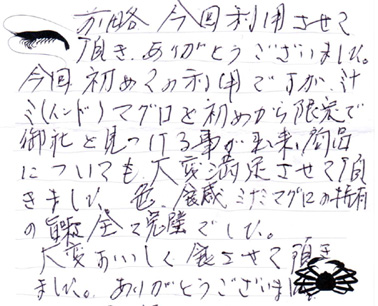 前略 今回利用させて
頂き、ありがとうございました。
今回初めての利用ですが、
ミ(インド)マグロと初めから限定で
御社を見つける事が出来、商品
についても、大変満足させて頂
きました。色、食感、ミナミマグロの特有
の 全て完璧でした。
大変おいしく食させて頂き
ました。ありがとうございました